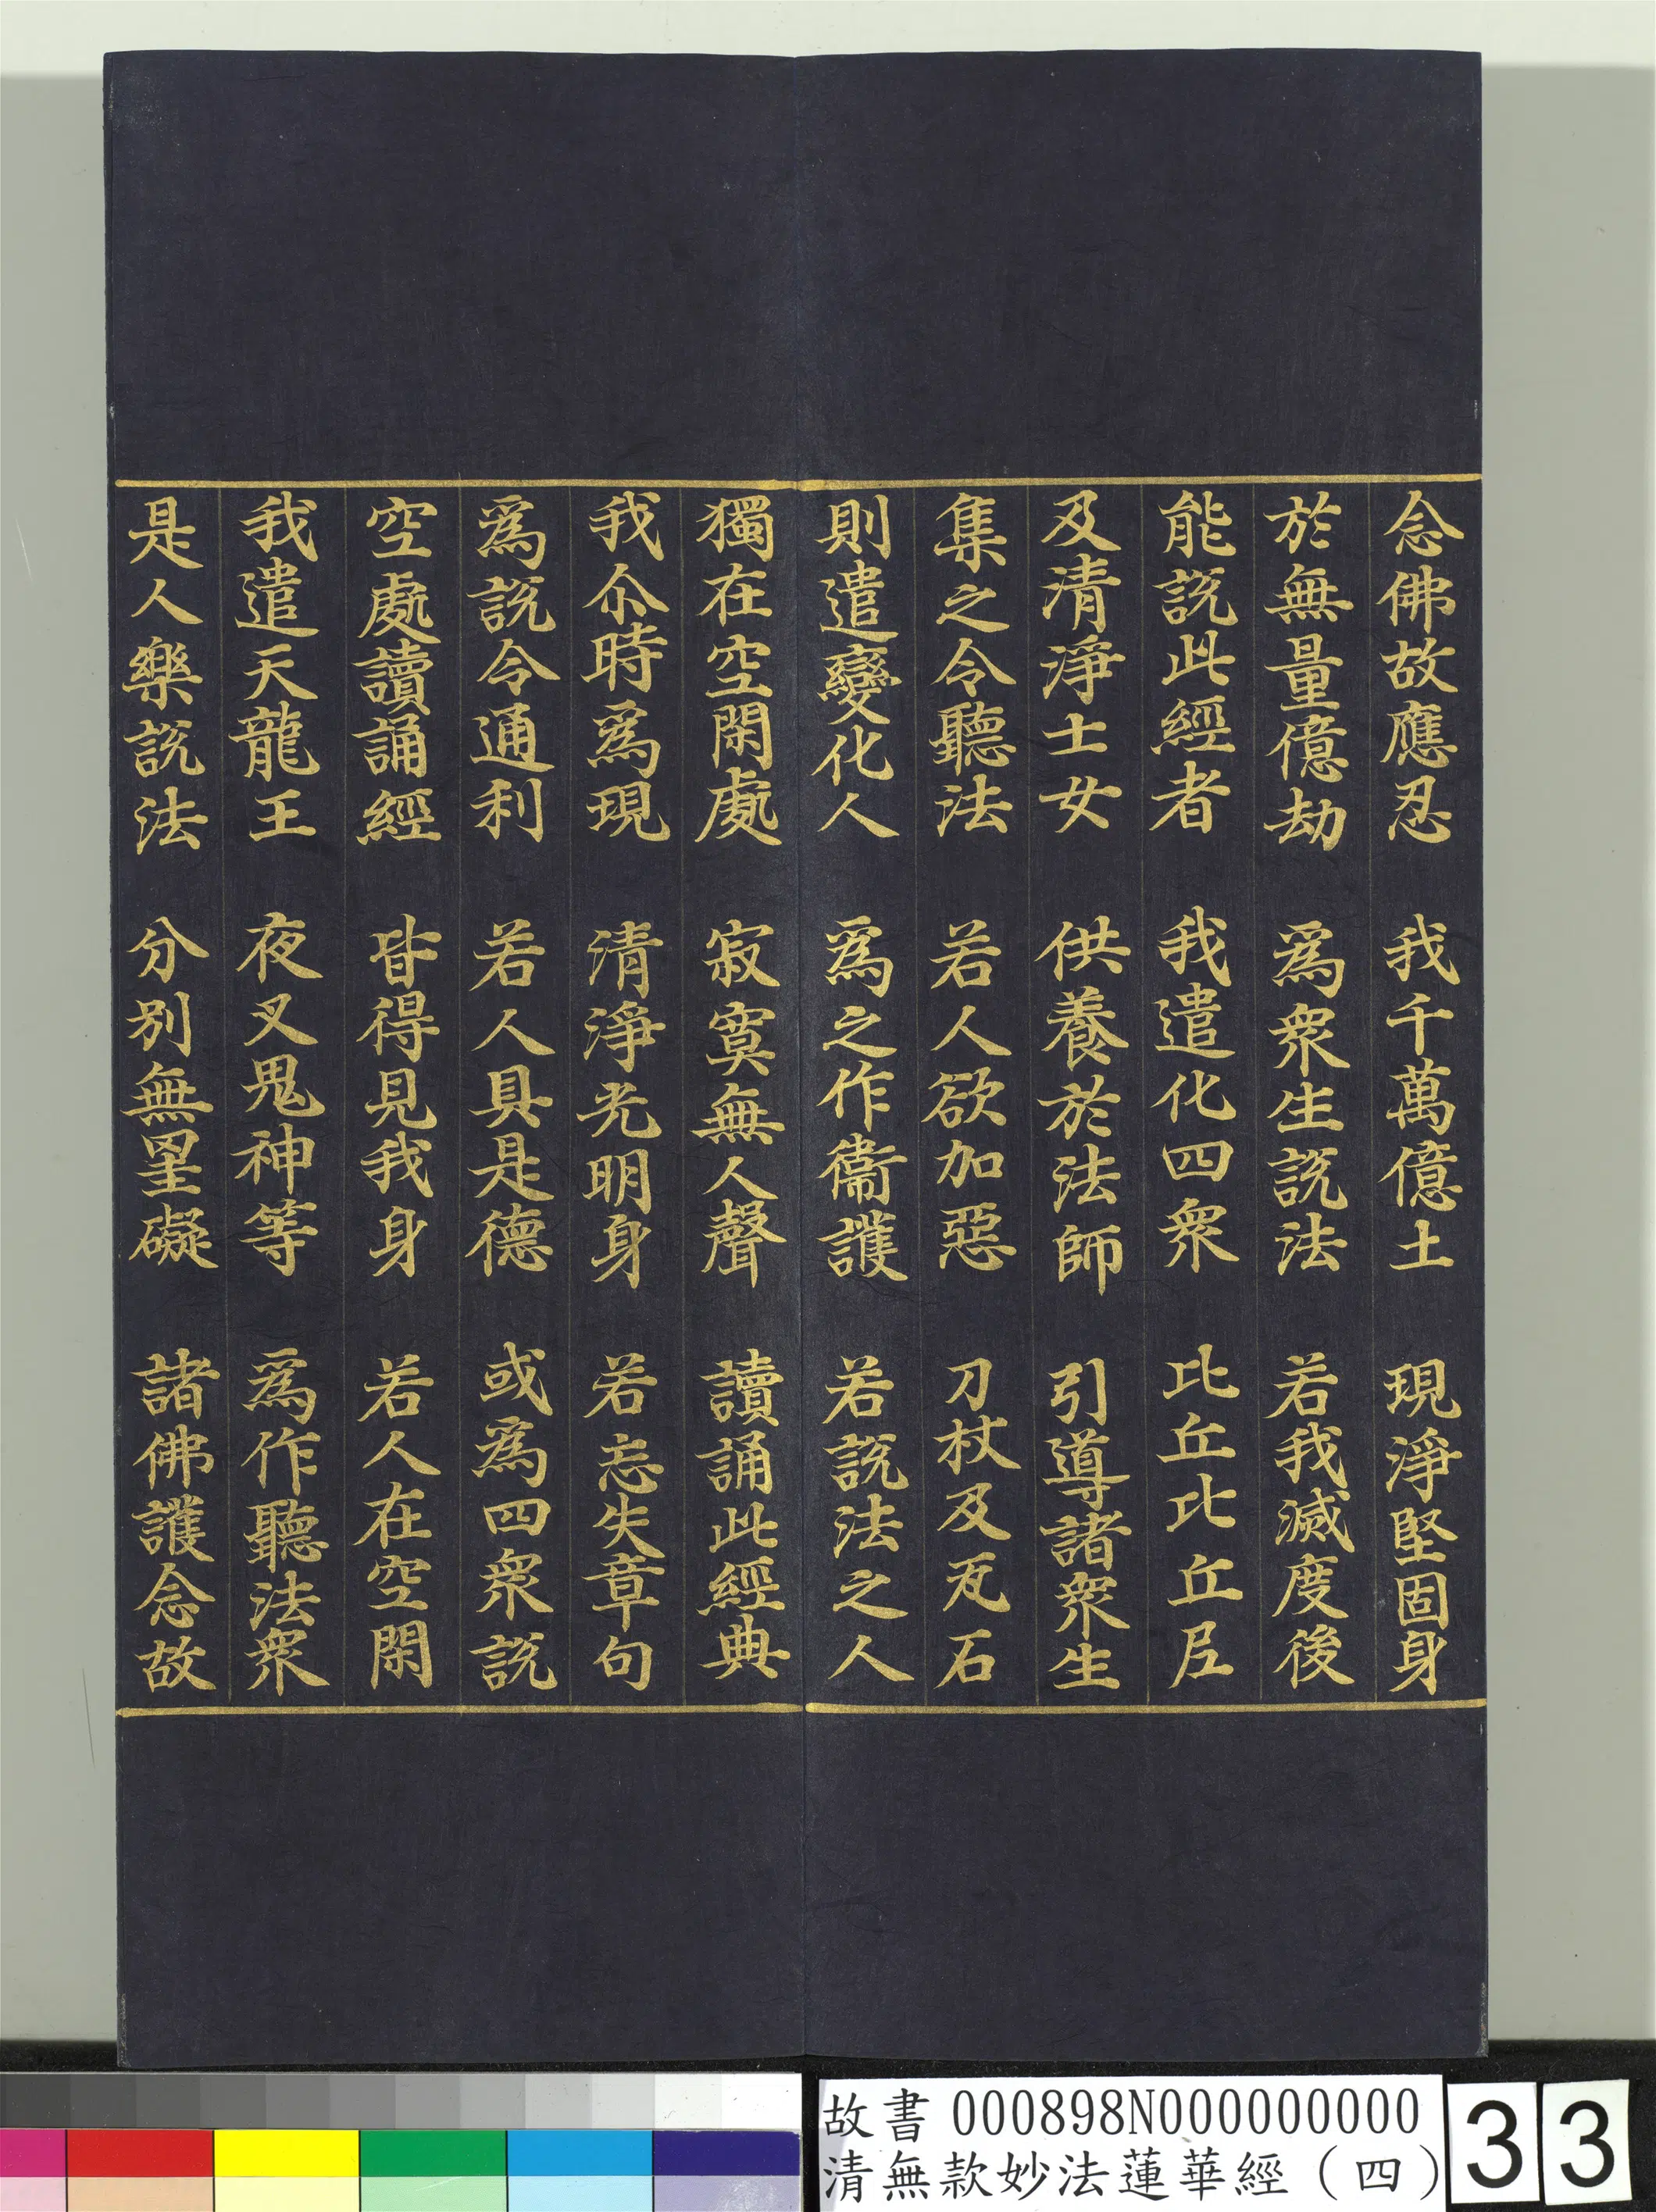 念佛故應忍 我千萬億土 現淨堅固身
於無量億劫 為衆生説法 若我滅度後
能説此經者 我遣化四衆 比丘比丘尼
及清淨士女 供養於法師 引導諸衆生
集之令聽法 若人欲加惡 刀杖及瓦石
則遣變化人 為之作衞護 若説法之人
獨在空閑處 寂寞無人聲 讀誦此經典
我尒時為現 清淨光明身 若忘失章句
為説令通利 若人具是德 或為四衆説
空處讀誦經 皆得見我身 若人在空閑
我遣天龍王 夜叉鬼神等 為作聽法衆
是人樂説法 分別無罣礙 諸佛護念故
故書 000898N000000000
清無款妙法蓮華經（四）
33